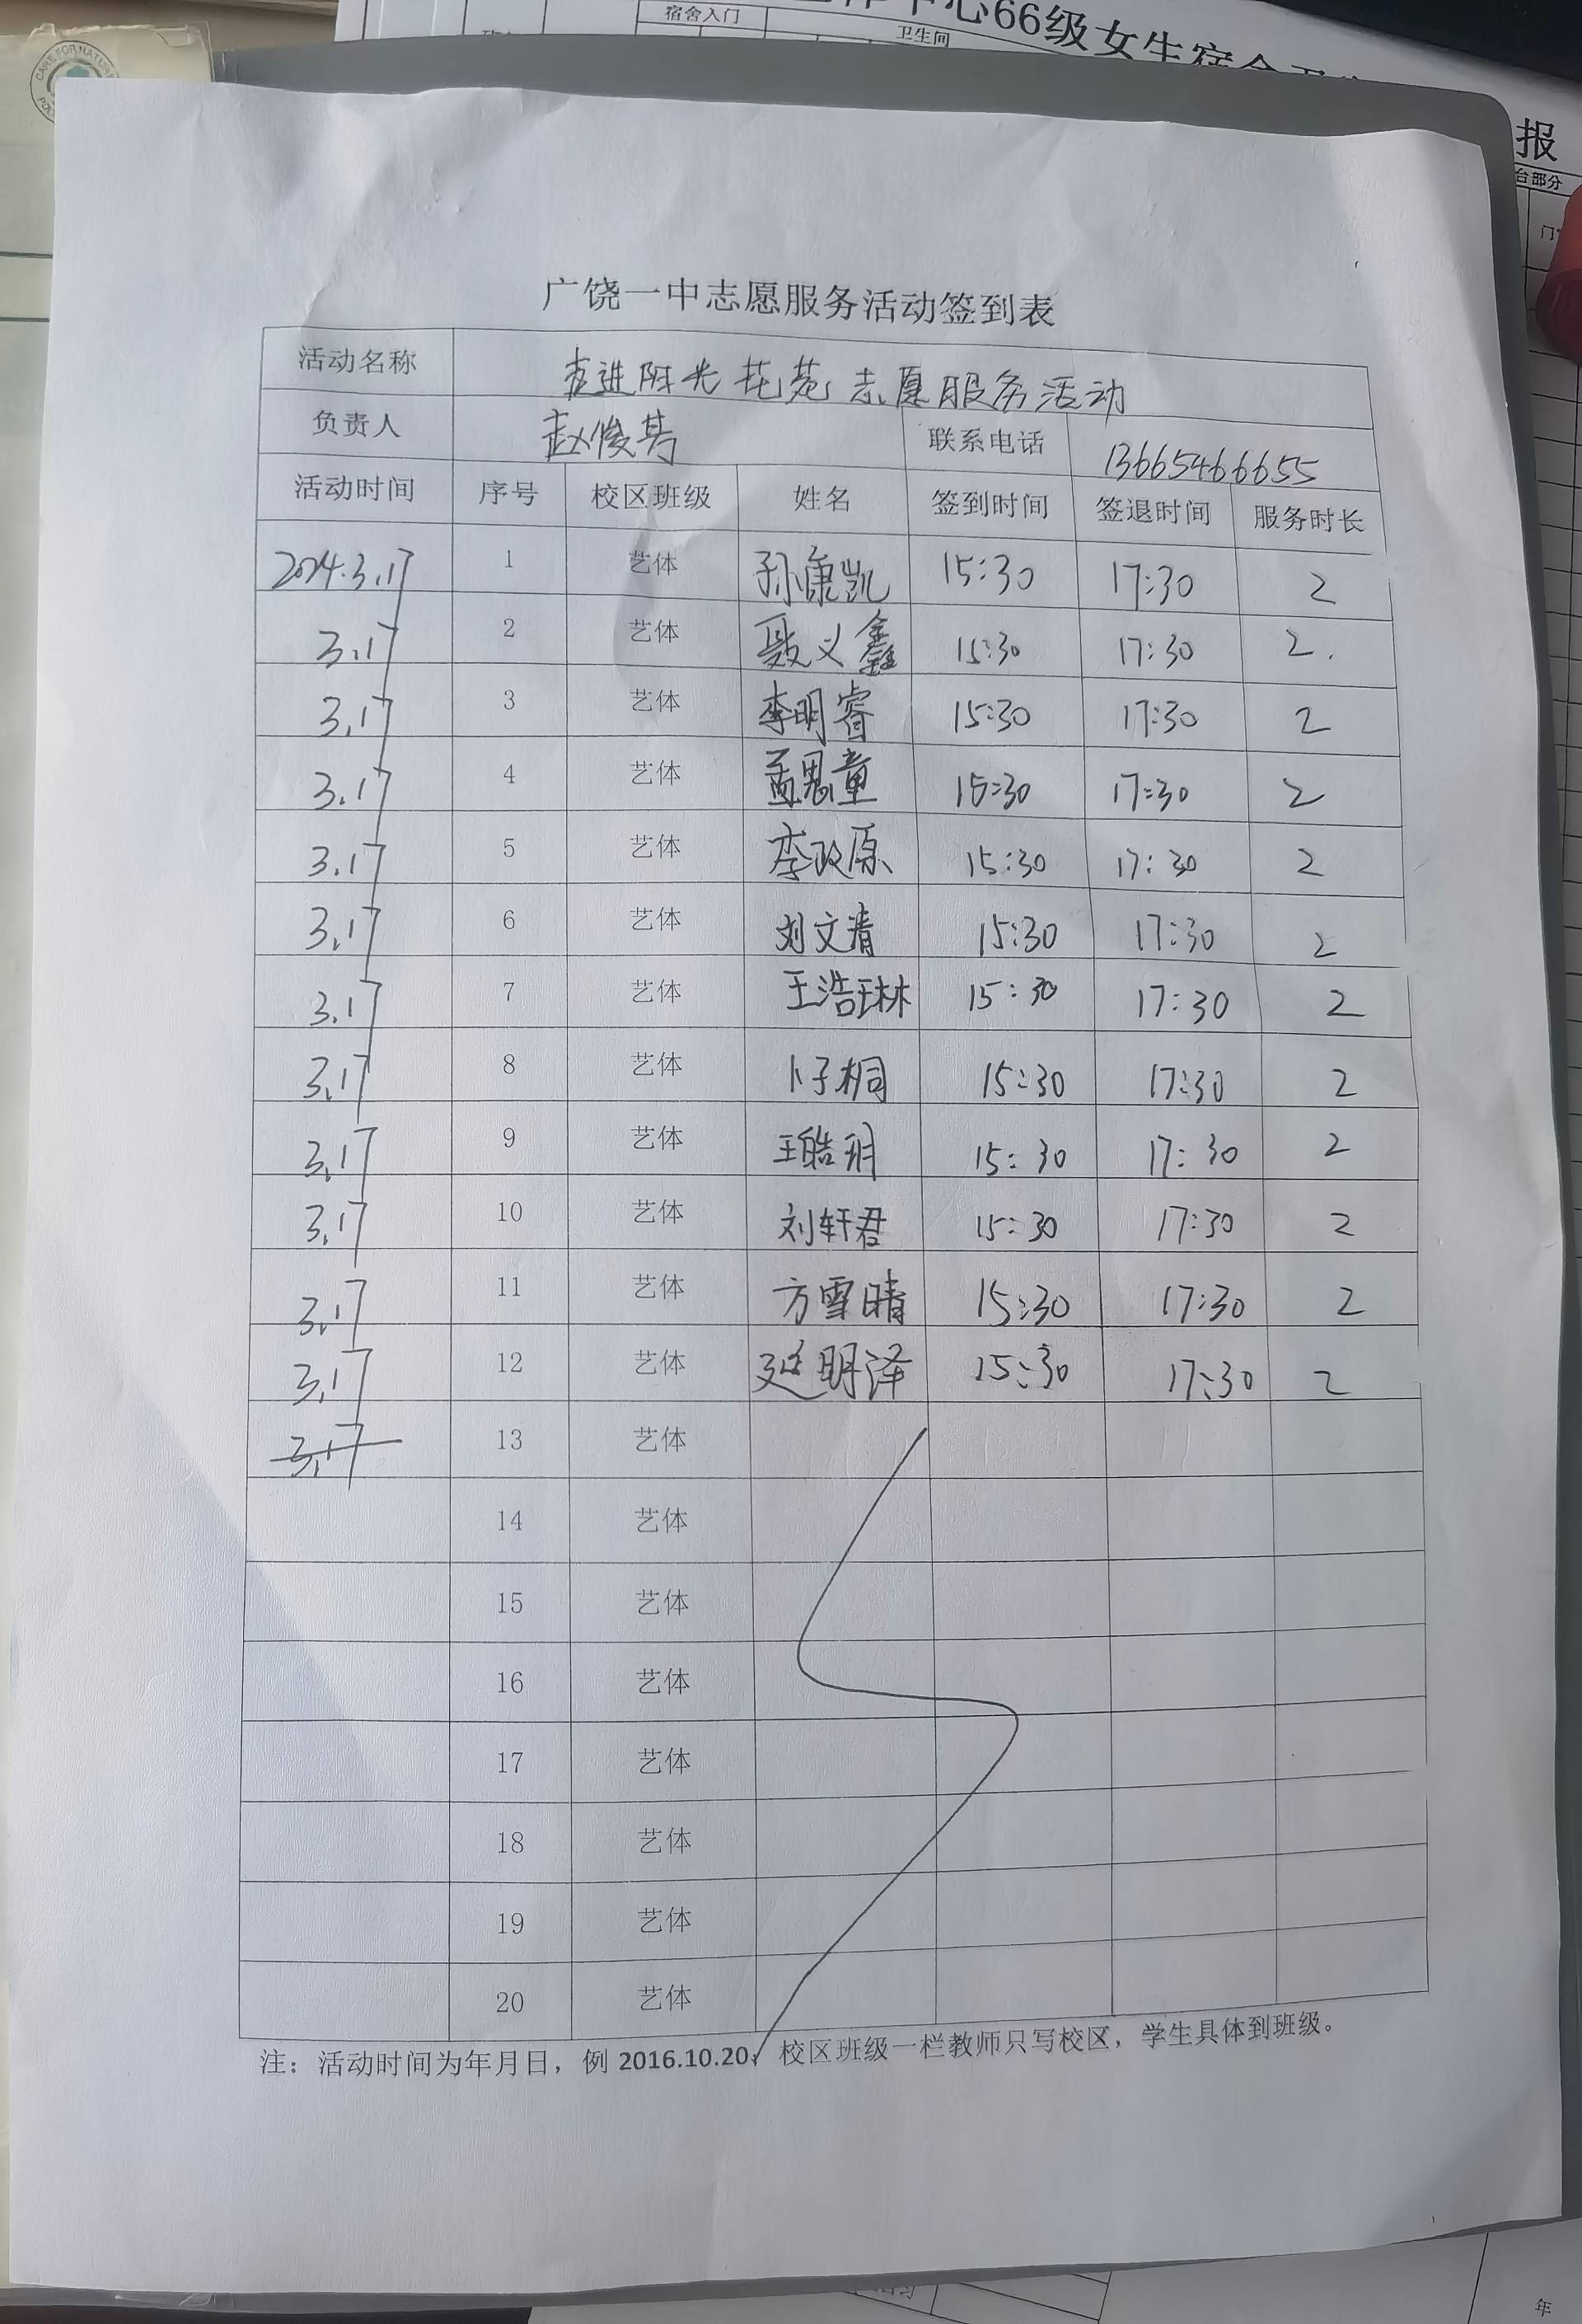 宿舍入门
卫生间
心66级女生宿舍
报
台部分
CARE FOR NATURE
广饶一中志愿服务活动签到表
活动名称 走进阳光花苑志愿服务活动
负责人 赵俊 联系电话 13665466655
活动时间 序号 校区班级 姓名 签到时间 签退时间 服务时长
2024.3.17 1 艺体 孙康凯 15:30 17:30 2
3.17 2 艺体 聂义鑫 15:30 17:30 2.
3.17 3 艺体 李明睿 15:30 17:30 2
3.17 4 艺体 孟思童 15:30 17:30 2
3.17 5 艺体 李政原 15:30 17:30 2
3.17 6 艺体 刘文清 15:30 17:30 2
3.17 7 艺体 王浩琳 15:30 17:30 2
3.17 8 艺体 卜子桐 15:30 17:30 2
3.17 9 艺体 王皓玥 15:30 17:30 2
3.17 10 艺体 刘轩君 15:30 17:30 2
3.17 11 艺体 方雪晴 15:30 17:30 2
3.17 12 艺体 延明泽 15:30 17:30 2
3.17 13 艺体
14 艺体
15 艺体
16 艺体
17 艺体
18 艺体
19 艺体
20 艺体
注：活动时间为年月日，例 2016.10.20；校区班级一栏教师只写校区，学生具体到班级。
年